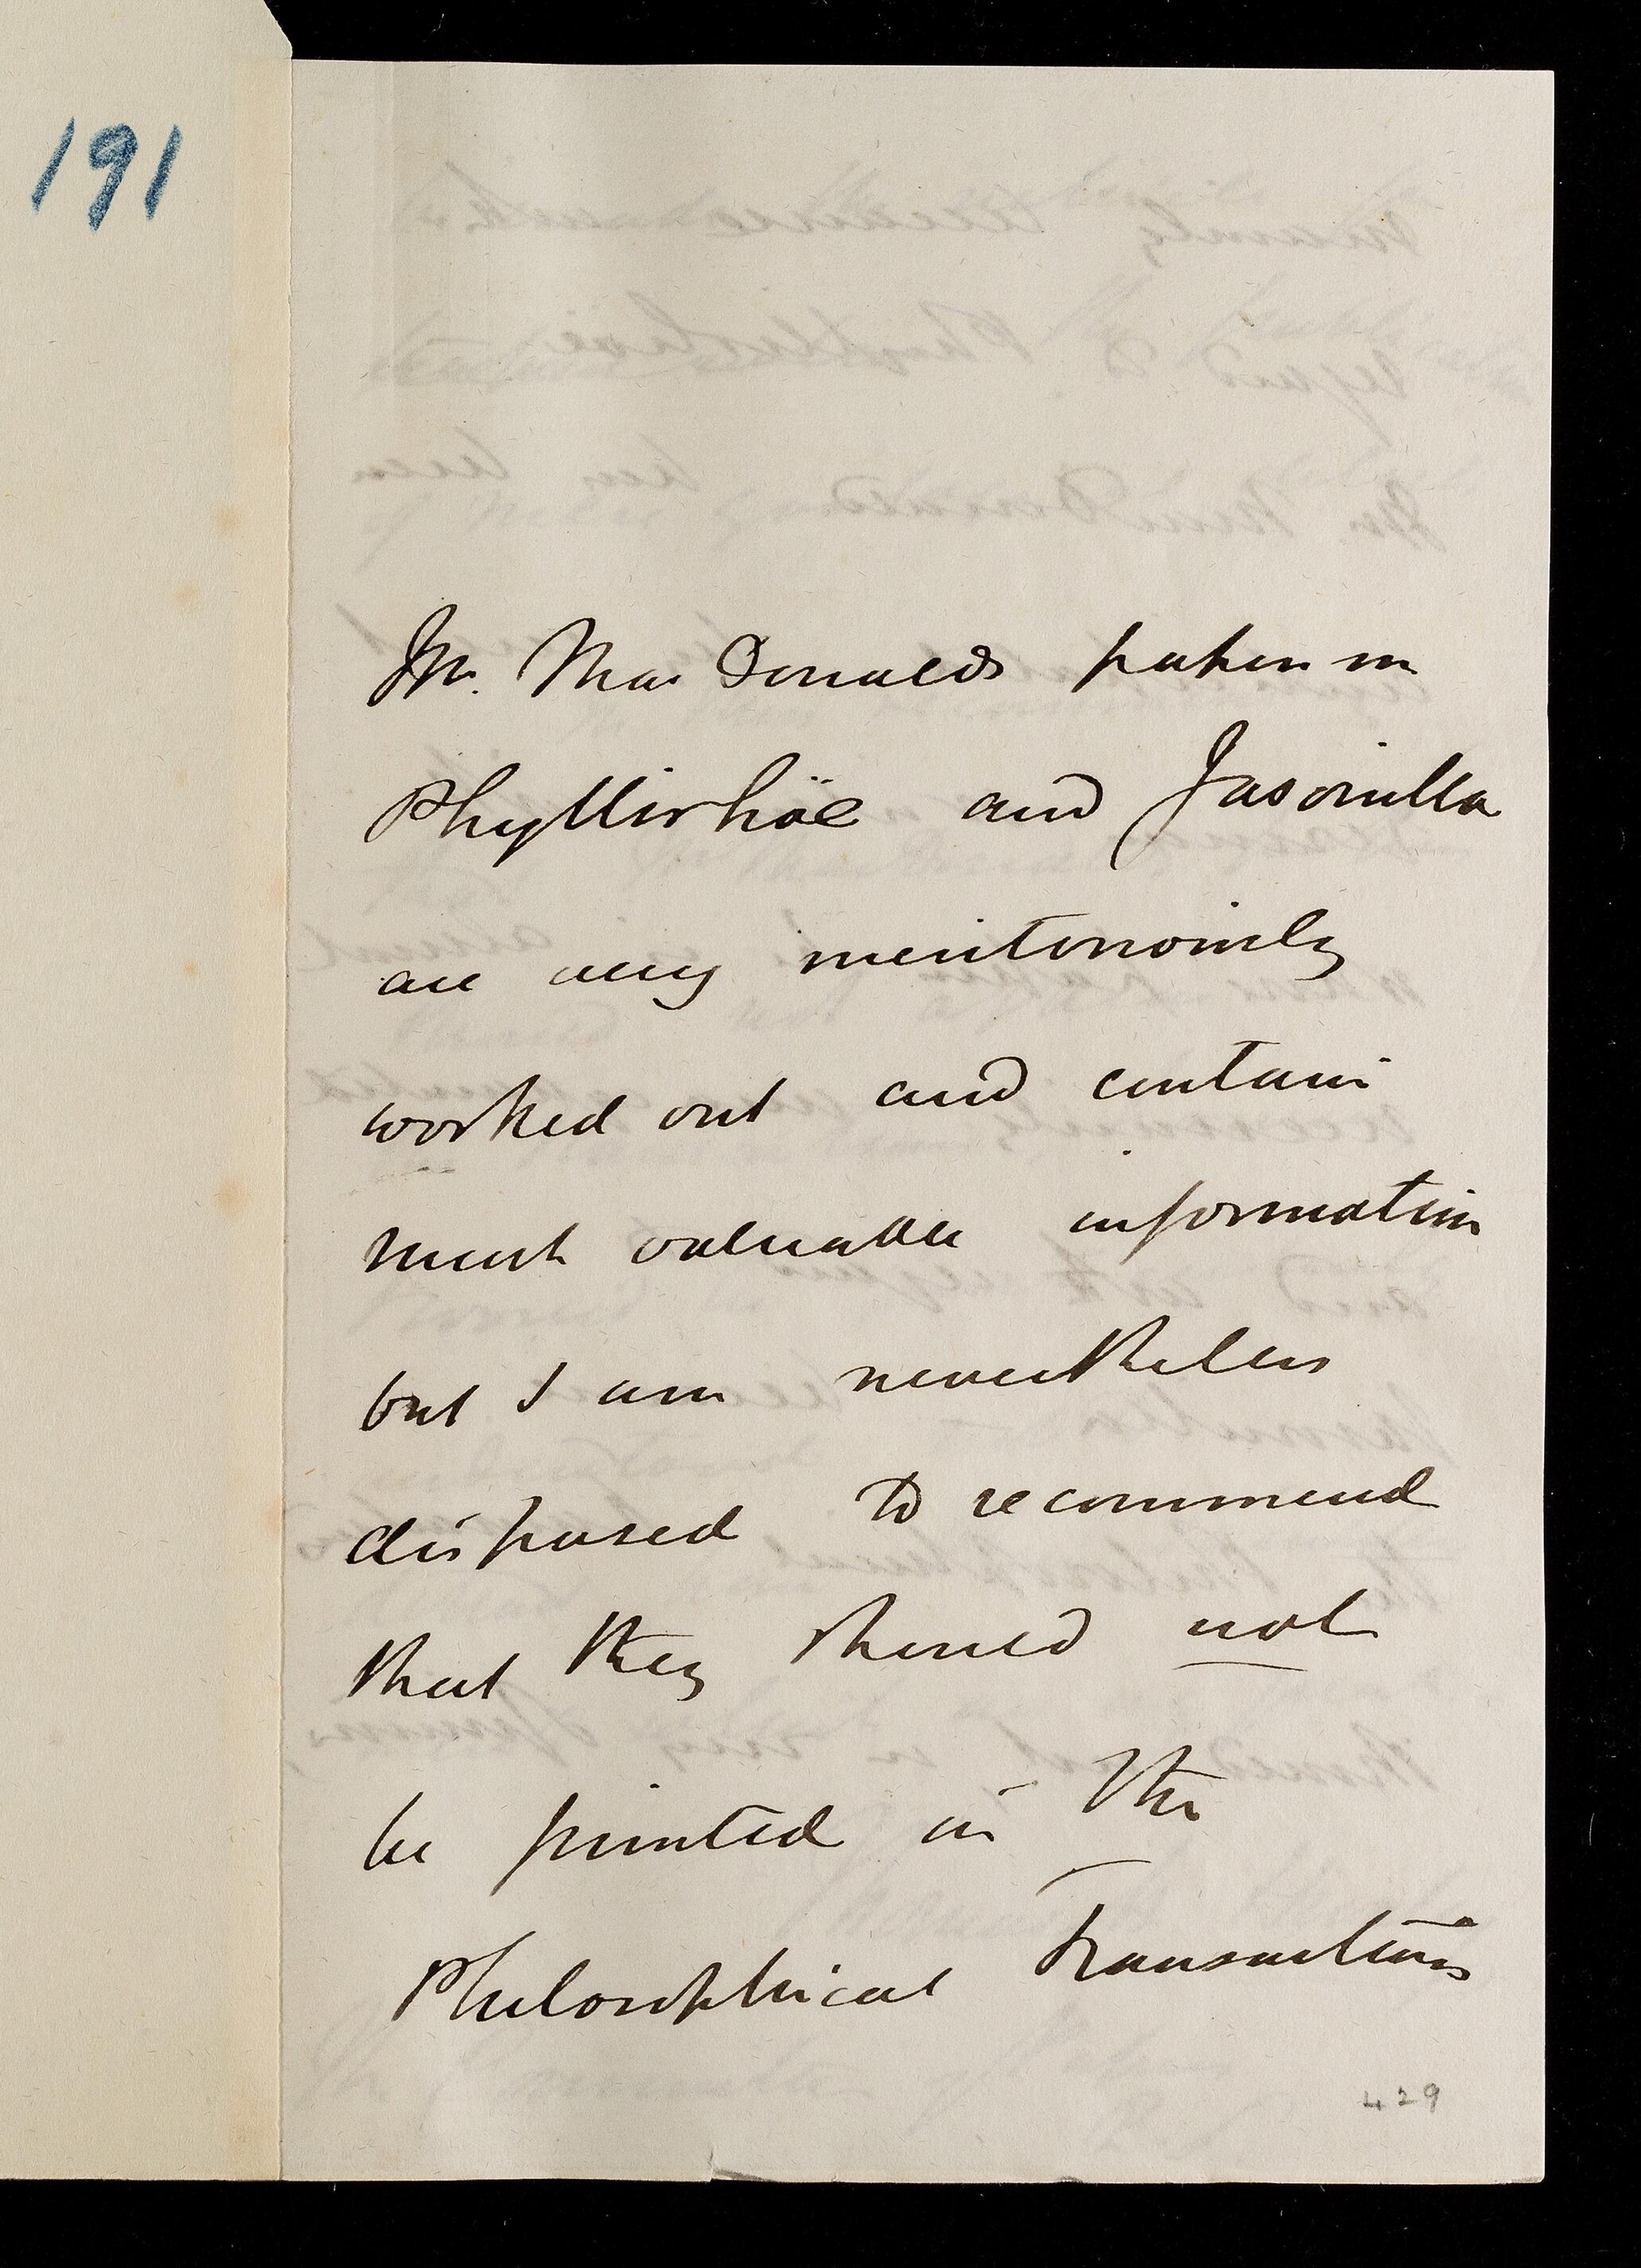 191
Mr. MacDonalds papers on
Phyllirhöe and Jasonilla
are very meritoriously
worked out and contain
much valuable information
but I am nevertheless
disposed to recommend
that they should not
be printed in the
Philosophical Transactions
429